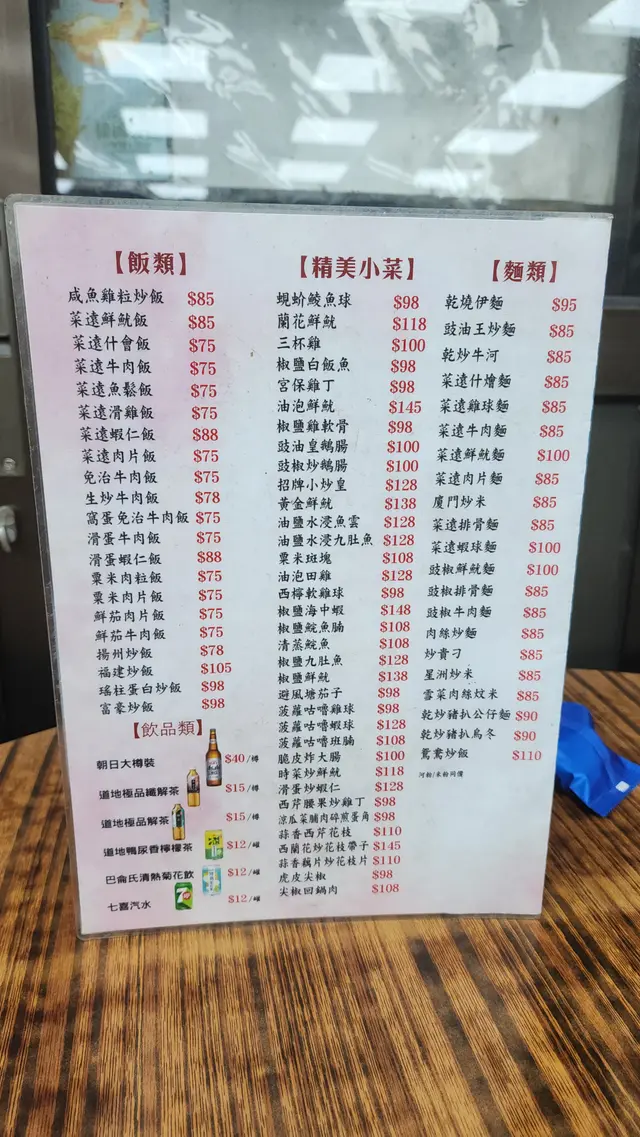 【飯類】
咸魚雞粒炒飯 $85
菜遠鮮魷飯 $85
菜遠什會飯 $75
菜遠牛肉飯 $75
菜遠魚鬆飯 $75
菜遠滑雞飯 $75
菜遠蝦仁飯 $88
菜遠肉片飯 $75
免治牛肉飯 $75
生炒牛肉飯 $78
窩蛋免治牛肉飯 $75
滑蛋牛肉飯 $75
滑蛋蝦仁飯 $88
粟米肉粒飯 $75
粟米肉片飯 $75
鮮茄肉片飯 $75
鮮茄牛肉飯 $75
揚州炒飯 $78
福建炒飯 $105
瑤柱蛋白炒飯 $98
富豪炒飯 $98
【飲品類】
朝日大樽裝 $40/樽
道地極品纖解茶 $15/樽
道地極品解茶 $15/樽
道地鴨尿香檸檬茶 $12/罐
巴侖氏清熱菊花飲 $12/罐
七喜汽水 $12/罐
【精美小菜】
蜆蚧鯪魚球 $98
蘭花鮮魷 $118
三杯雞 $100
椒鹽白飯魚 $98
宮保雞丁 $98
油泡鮮魷 $145
椒鹽雞軟骨 $98
豉油皇鵝腸 $100
豉椒炒鵝腸 $100
招牌小炒皇 $128
黃金鮮魷 $138
油鹽水浸魚雲 $128
油鹽水浸九肚魚 $128
粟米斑塊 $108
油泡田雞 $128
西檸軟雞球 $98
椒鹽海中蝦 $148
椒鹽鯇魚腩 $108
清蒸鯇魚 $108
椒鹽九肚魚 $128
椒鹽鮮魷 $138
避風塘茄子 $98
菠蘿咕嚕雞球 $98
菠蘿咕嚕蝦球 $128
菠蘿咕嚕班腩 $108
脆皮炸大腸 $100
時菜炒鮮魷 $118
滑蛋炒蝦仁 $128
西芹腰果炒雞丁 $98
涼瓜菜脯肉碎煎蛋角 $98
蒜香西芹花枝 $110
西蘭花炒花枝帶子 $145
蒜香藕片炒花枝片 $110
虎皮尖椒 $98
尖椒回鍋肉 $108
【麵類】
乾燒伊麵 $95
豉油王炒麵 $85
乾炒牛河 $85
菜遠什燴麵 $85
菜遠雞球麵 $85
菜遠牛肉麵 $85
菜遠鮮魷麵 $100
菜遠肉片麵 $85
廈門炒米 $85
菜遠排骨麵 $85
菜遠蝦球麵 $100
豉椒鮮魷麵 $100
豉椒排骨麵 $85
豉椒牛肉麵 $85
肉絲炒麵 $85
炒貴刁 $85
星洲炒米 $85
雪菜肉絲炆米 $85
乾炒豬扒公仔麵 $90
乾炒豬扒烏冬 $90
鴛鴦炒飯 $110
河粉/米粉同價